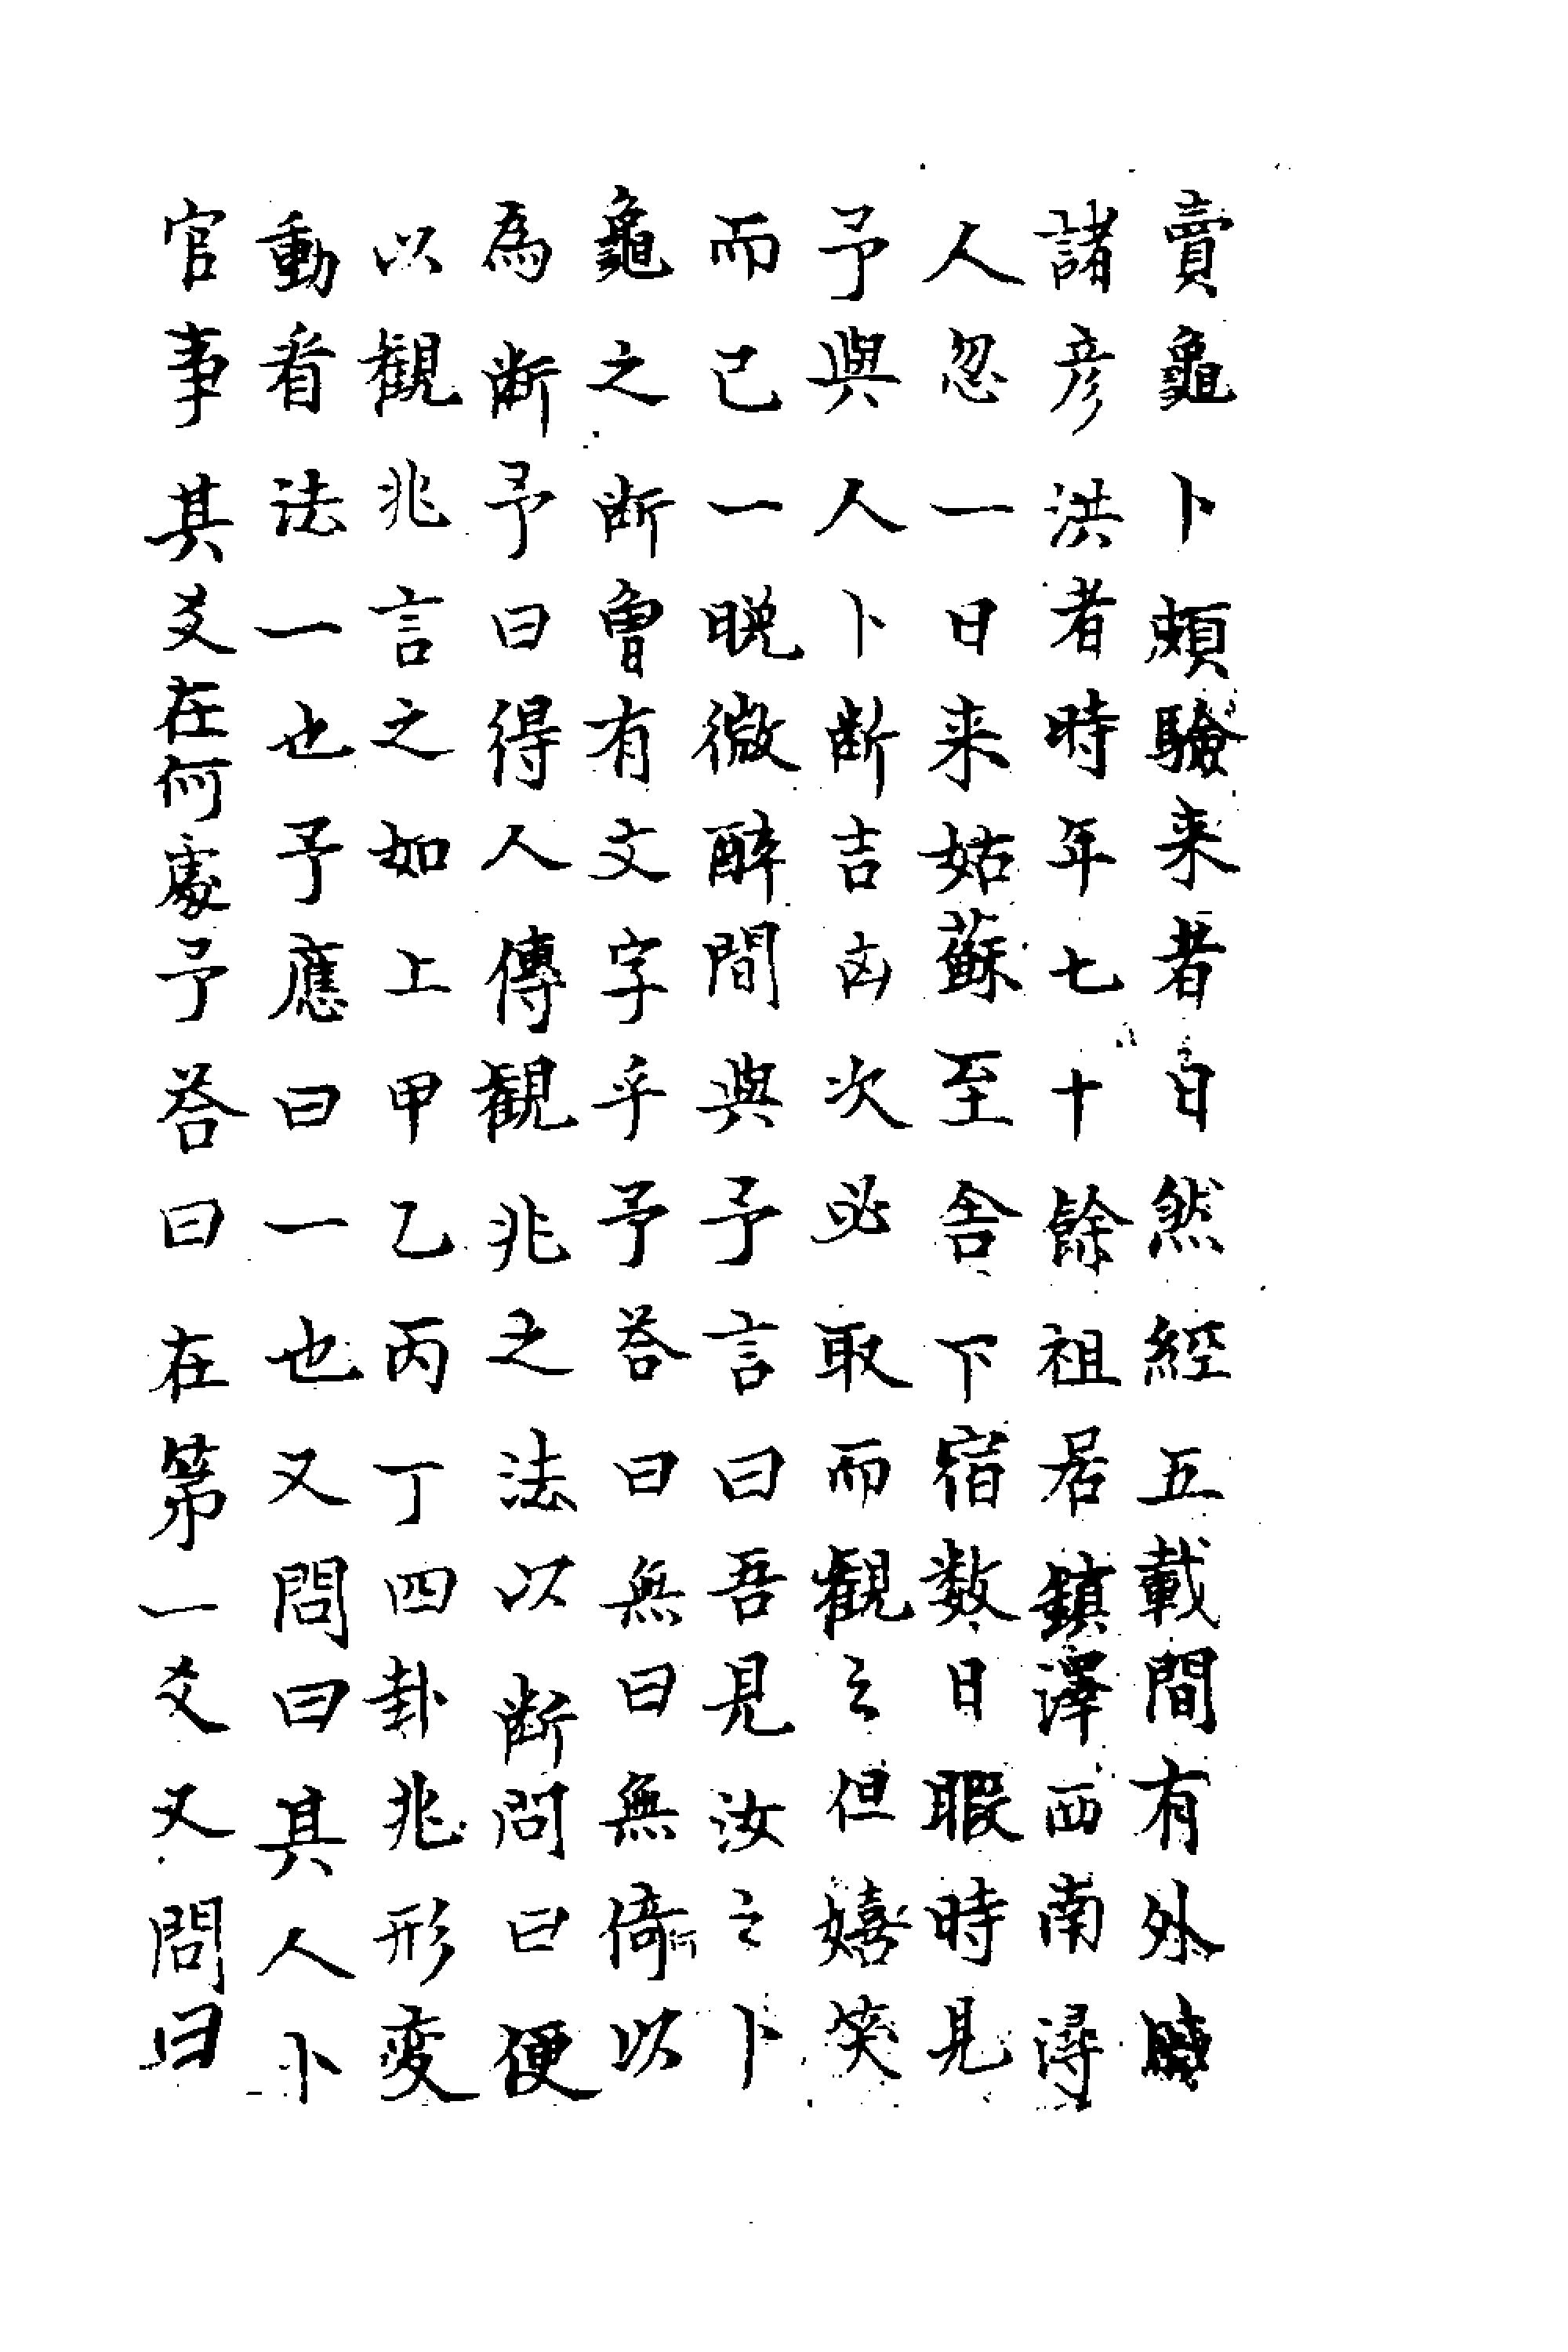 賣龜卜頗驗来者日然經五載間有外
諸彦洪者時年七十餘祖居鎮澤西南潯
人忽一日来姑蘇至舍下宿数日暇時見
予與人卜断吉凶次必取而観之但嬉笑
而己一晚微醉間與予言曰吾見汝之卜
龜之断曾有文字乎予答曰無曰無倚何以
為断予曰得人傳観兆之法以断問曰便
以観兆言之如上甲乙丙丁四卦兆形変
動看法一也予應曰一也又問曰其人卜
官事其爻在何處予答曰在第一爻又問曰